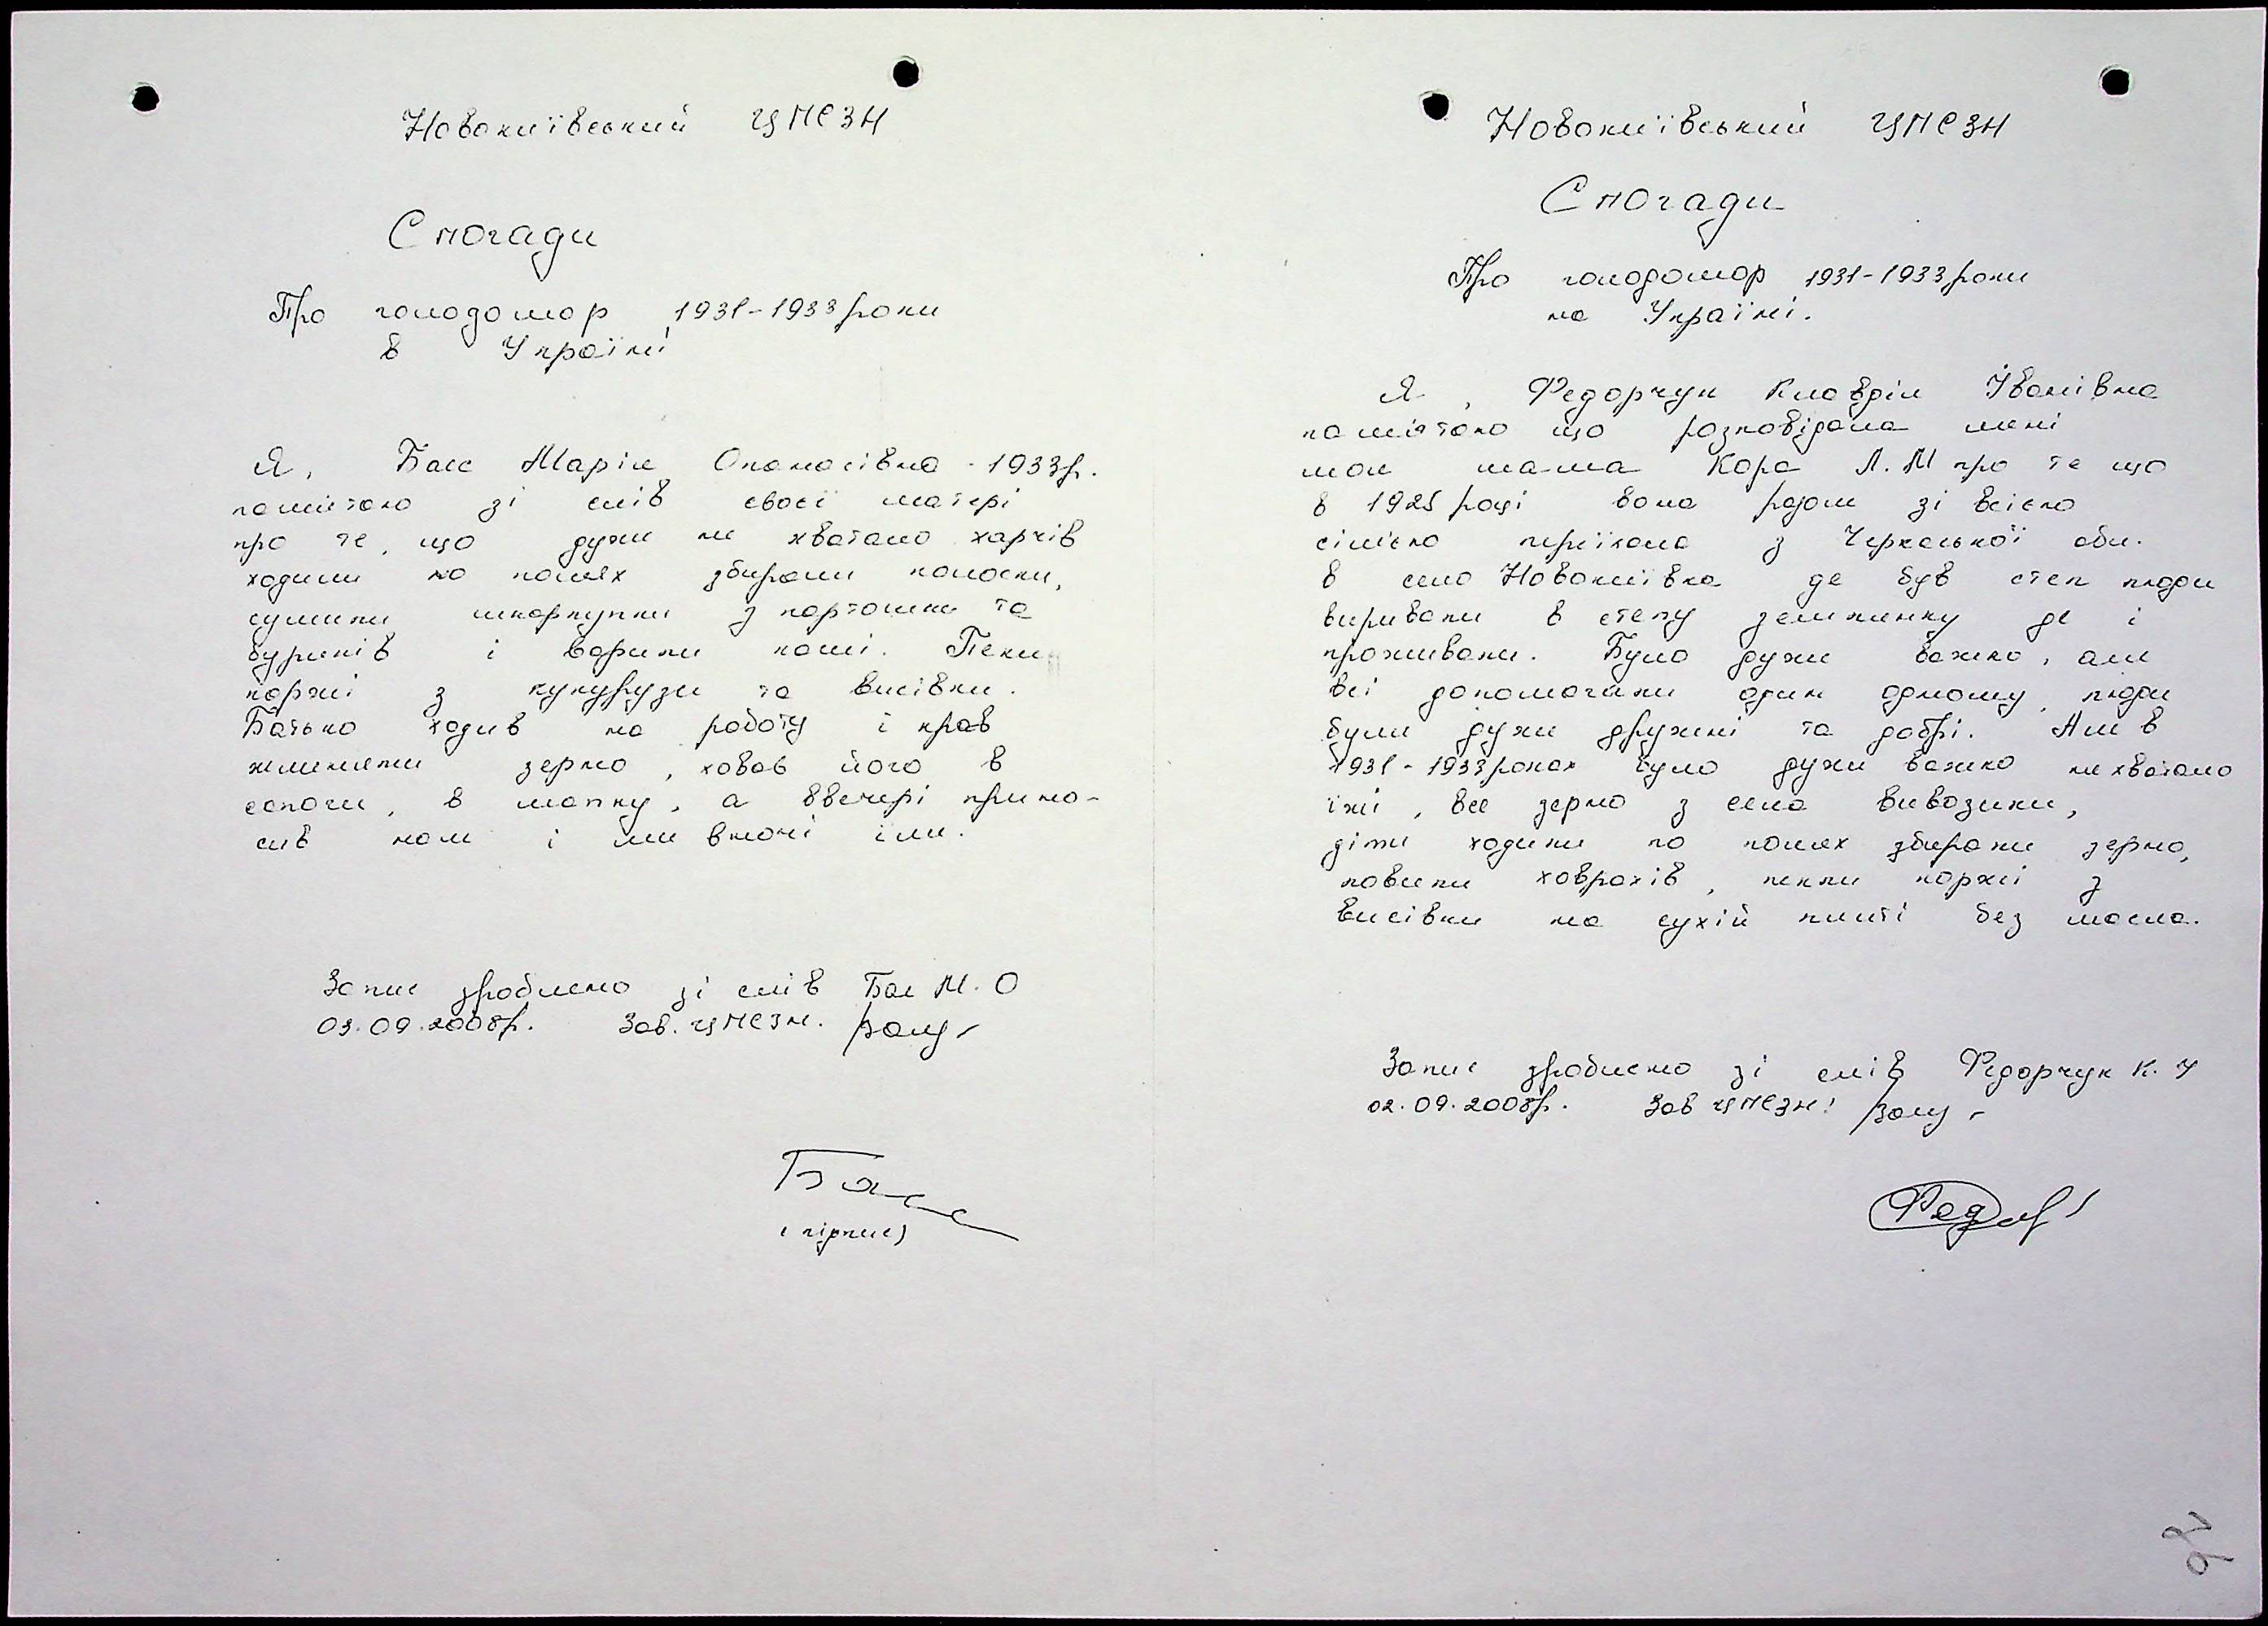 Новокиївський ЦПСЗН
Спогади
Про голодомор 1931-1933 роки
в Україні
Я, Басс Марія Опанасівна - 1933р.
памʼятаю зі слів своєї матері
про те, що дуже не хватало харчів
ходили по полях збирали колоски,
сушили шкарлупки з картошки та
буряків і варили каші. Пекли
коржі з кукурузи та висівки.
Батько ходив на роботу і крав
жменями зерно, ховав його в
сапоги, в шапку, а ввечері прино-
сив нам і ми вночі їли.
Запис зроблено зі слів Бас М.О
03.09.2008р. Зав. ЦПСЗН.
Басс
(підпис)
Новокиївський ЦПСЗН
Спогади
Про голодомор 1931-1933 роки
на Україні.
Я, Федорчук Клавдія Іванівна
памʼятаю що розповідала мені
моя мама Кора Л.М про те що
в 1925 році вона разом зі всією
сімʼєю переїхала з Черкаської обл.
в село Новокиївка де був степ люди
виривали в степу землянку де і
проживали. Було дуже важко, але
всі допомагали один одному, люди
були дуже дружні та добрі. Але в
1931-1933 роках було дуже важко не хватало
їжі, все зерно з села вивозили,
діти ходили по полях збирали зерно,
ловили ховрахів, пекли коржі з
висівки на сухій плиті без масла.
Запис зроблено зі слів Федорчук К.І
02.09.2008р. Зав ЦПСЗН: